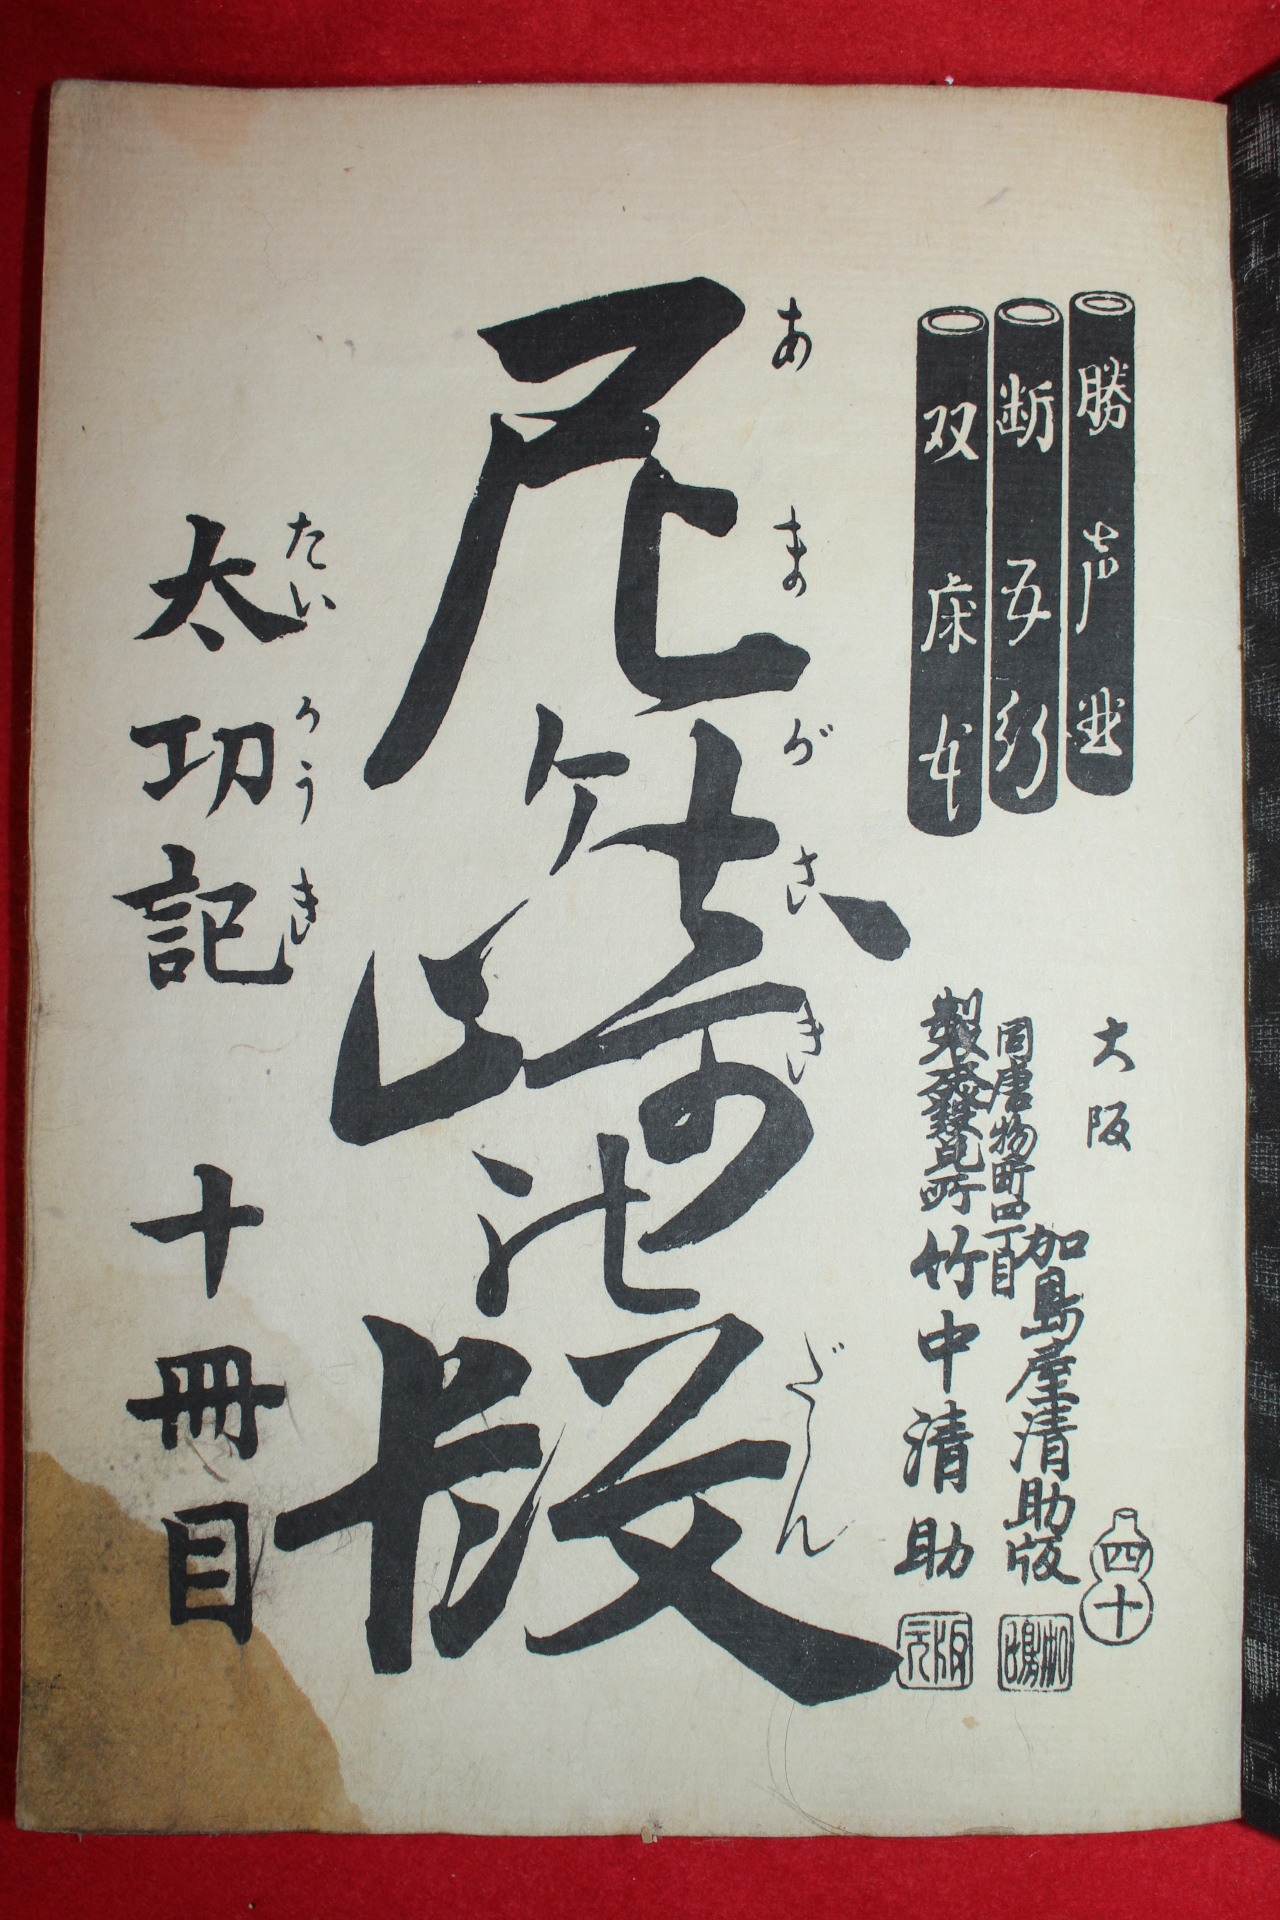 勝声曲
断五行
双床本
大阪
加島屋清助版
同唐物町四丁目
製本発見所竹中清助
四十
版元
あまがさきだん
尼ヶ崎の段
たいかうき
太功記 十冊目